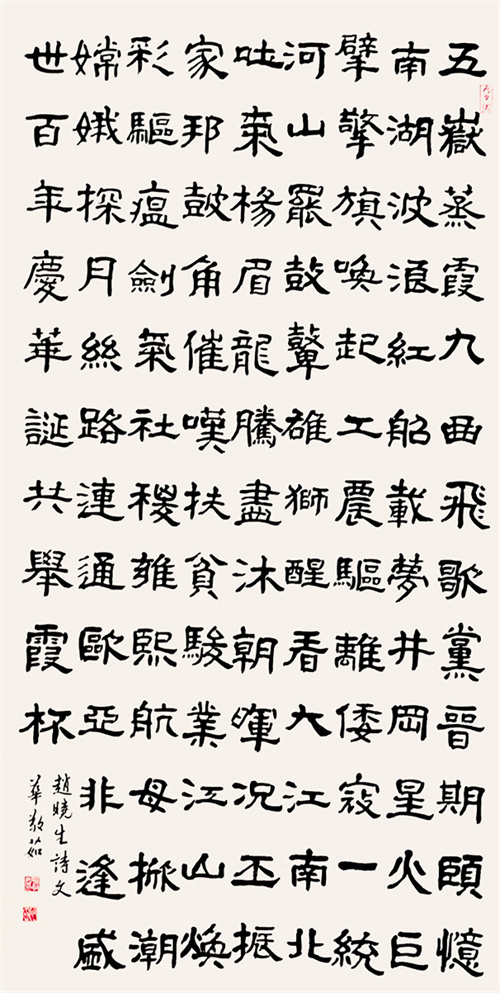 五嶽蒸霞九曲飛歌黨晉期頤憶
南湖波浪紅船載夢井岡星火巨
擘擎旗喚起工農驅離倭寇一統
河山罷鼓鼙雄獅醒看大江南北
吐氣楊眉龍騰盡沐朝暉況丕振
家邦鼓角催嘆扶貧駿業江山煥
彩驅瘟劍氣社稷雍熙航母掀潮
嫦娥探月絲路連通歐亞非逢盛
世百年慶華誕共舉霞杯
趙曉生詩文
華敬茹